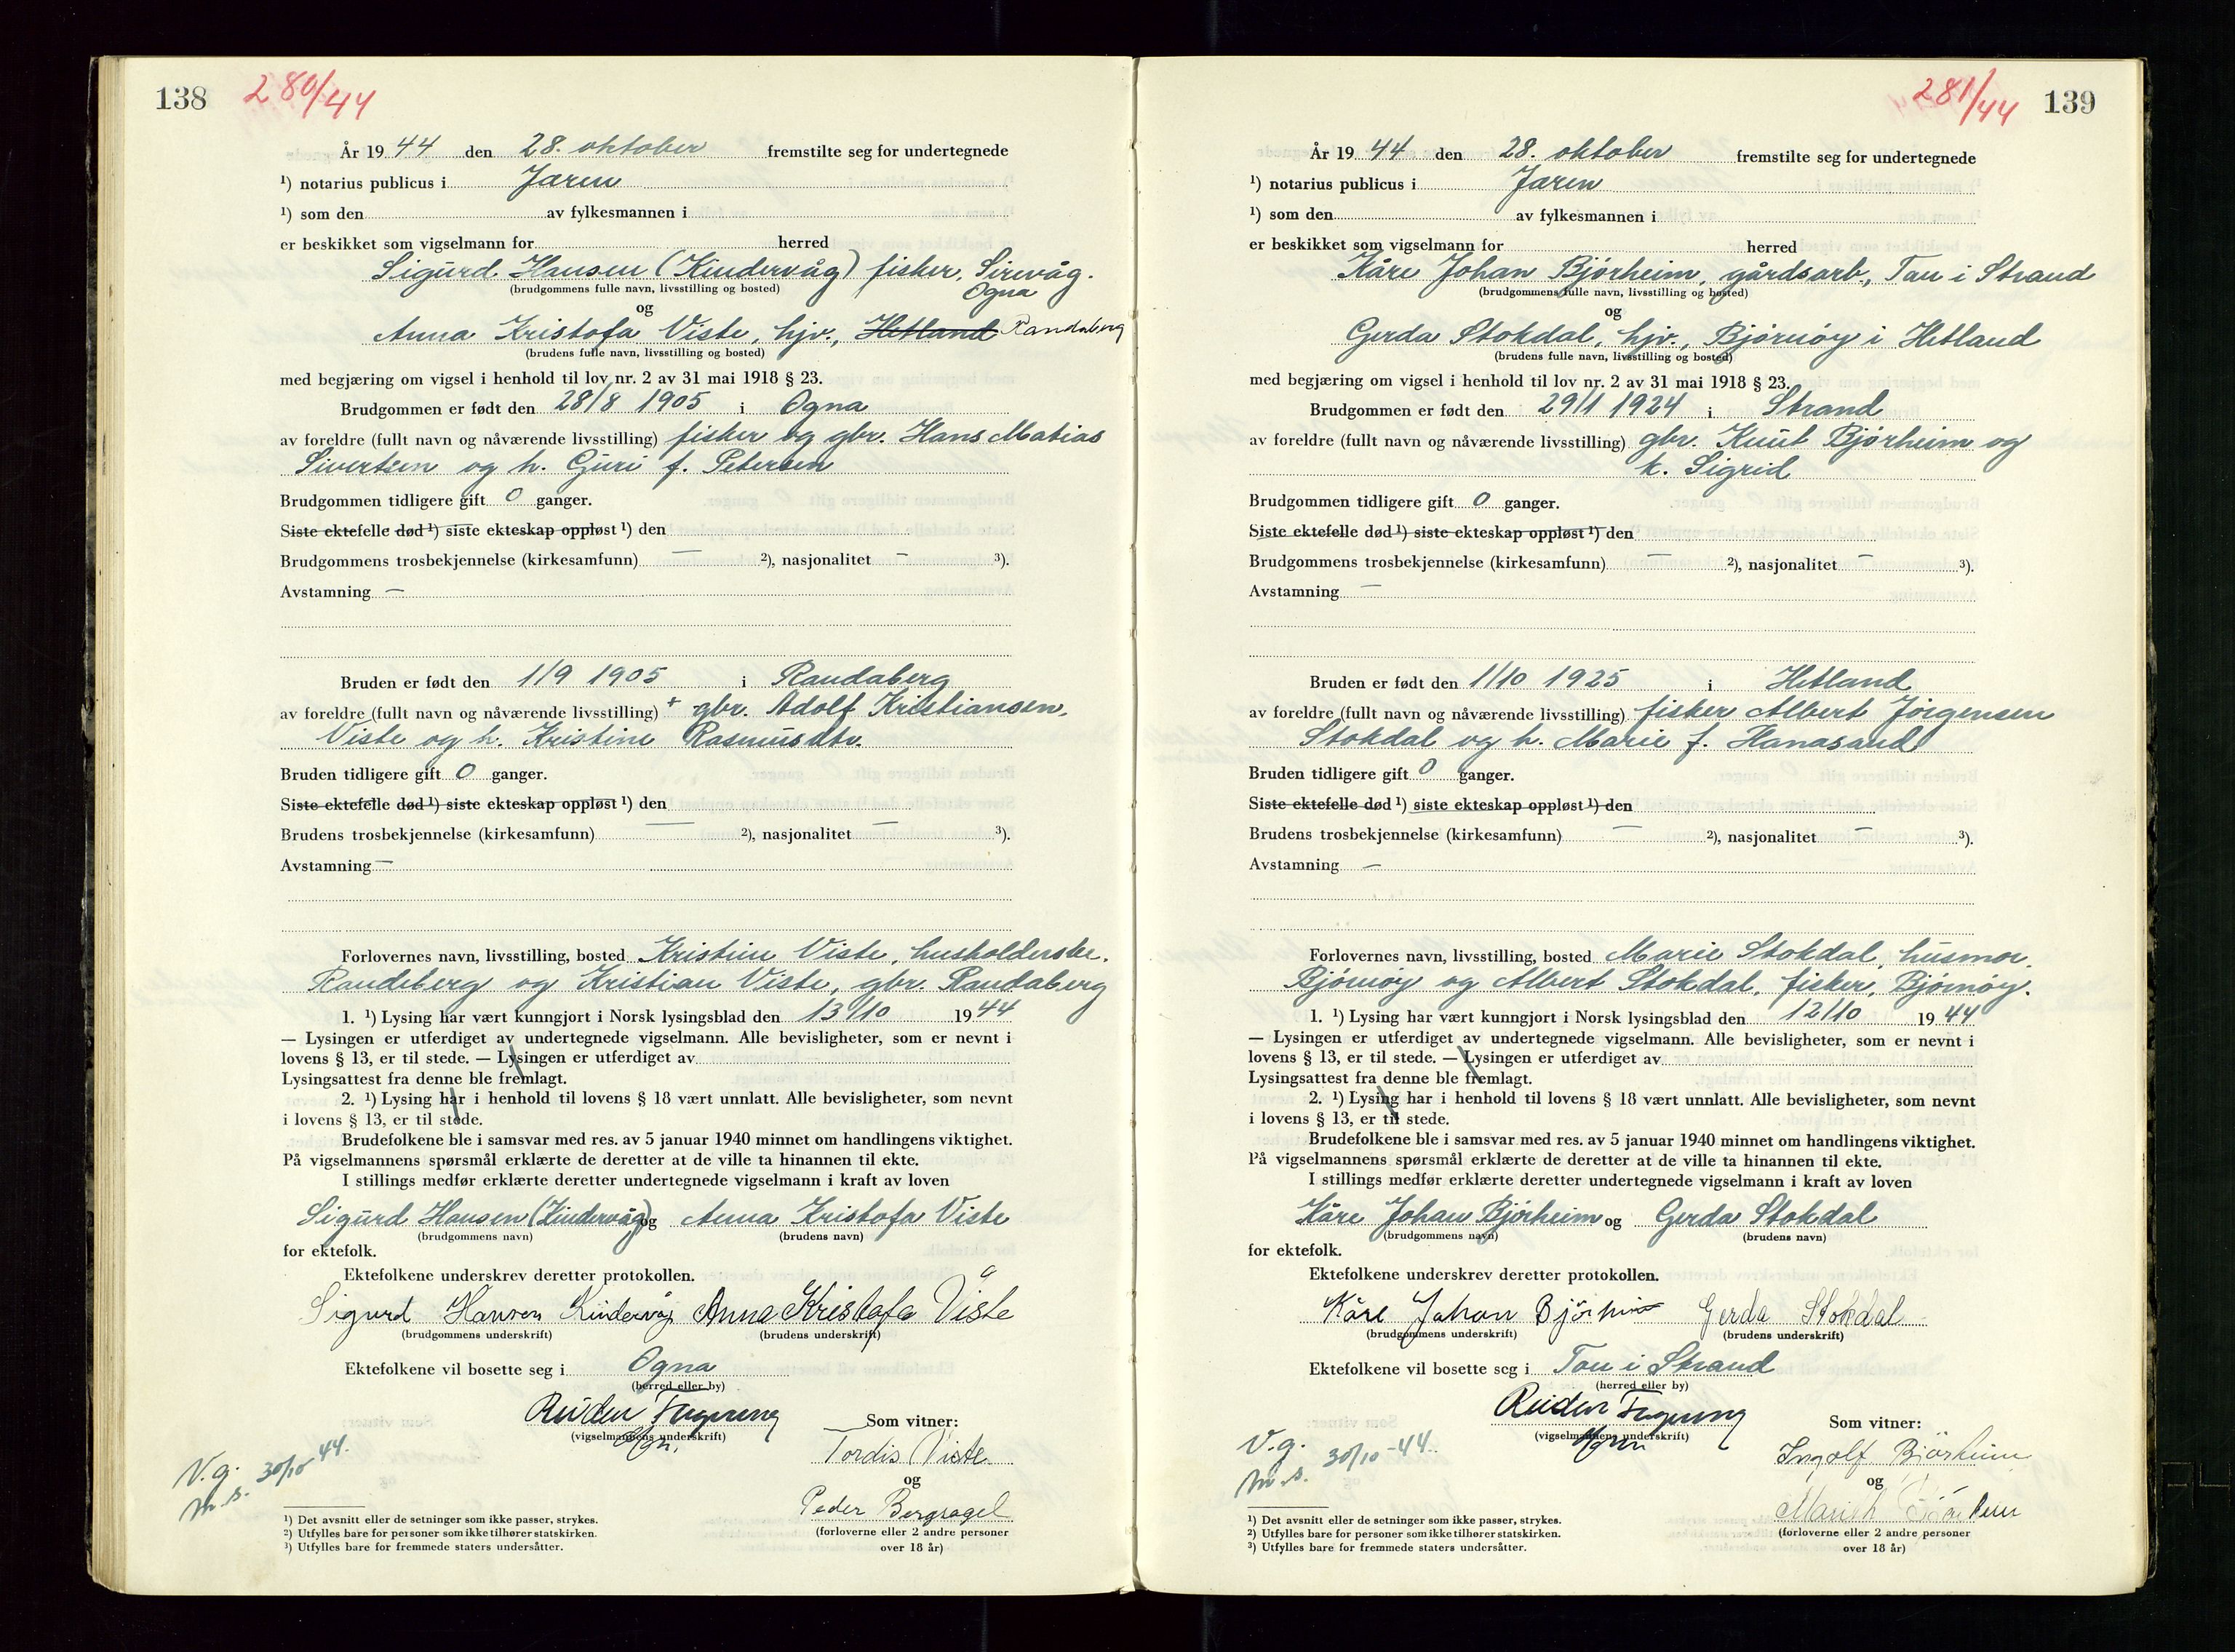 138 280/44
År 1944 den 28. oktober fremstilte seg for undertegnede
¹) notarius publicus i Jæren
¹) som den av fylkesmannen i
er beskikket som vigselmann for herred
Sigurd Hansen (Kindervåg) fisker, Sirevåg.
(brudgommens fulle navn, livsstilling og bosted) Ogna
og
Anna Kristofa Viste, hjv., Hetland Randaberg
(brudens fulle navn, livsstilling og bosted)
med begjæring om vigsel i henhold til lov nr. 2 av 31 mai 1918 § 23.
Brudgommen er født den 28/8 1905 i Ogna
av foreldre (fullt navn og nåværende livsstilling) fisker og gbr. Hans Matias
Sivertsen og h. Guri f. Petersen
Brudgommen tidligere gift 0 ganger.
Siste ektefelle død ¹) siste ekteskap oppløst ¹) den
Brudgommens trosbekjennelse (kirkesamfunn) — ²), nasjonalitet — ³).
Avstamning —
Bruden er født den 1/9 1905 i Randaberg
av foreldre (fullt navn og nåværende livsstilling) + gbr. Adolf Kristiansen,
Viste og h. Kristine Rasmusdtr.
Bruden tidligere gift 0 ganger.
Siste ektefelle død ¹) siste ekteskap oppløst ¹) den
Brudens trosbekjennelse (kirkesamfunn) — ²), nasjonalitet — ³).
Avstamning —
Forlovernes navn, livsstilling, bosted Kristine Viste, husholderske,
Randeberg og Kristian Viste, gbr. Randaberg
1. ¹) Lysing har vært kunngjort i Norsk lysingsblad den 13/10 1944
— Lysingen er utferdiget av undertegnede vigselmann. Alle bevisligheter, som er nevnt i
lovens § 13, er til stede. — Lysingen er utferdiget av
Lysingsattest fra denne ble fremlagt.
2. ¹) Lysing har i henhold til lovens § 18 vært unnlatt. Alle bevisligheter, som nevnt
i lovens § 13, er til stede.
Brudefolkene ble i samsvar med res. av 5 januar 1940 minnet om handlingens viktighet.
På vigselmannens spørsmål erklærte de deretter at de ville ta hinannen til ekte.
I stillings medfør erklærte deretter undertegnede vigselmann i kraft av loven
Sigurd Hansen (Kindervåg) og Anna Kristofa Viste
(brudgommens navn) (brudens navn)
for ektefolk.
Ektefolkene underskrev deretter protokollen.
Sigurd Hansen Kindervåg Anna Kristofa Viste
(brudgommens underskrift) (brudens underskrift)
Ektefolkene vil bosette seg i Ogna
(herred eller by)
(vigselmannens underskrift) Som vitner:
Tordis Viste
og
Peder Bergsagel
(forloverne eller 2 andre personer
over 18 år)
V.g. 30/10-44.
m.s.
¹) Det avsnitt eller de setninger som ikke passer, strykes.
²) Utfylles bare for personer som ikke tilhører statskirken.
³) Utfylles bare for fremmede staters undersåtter.
281/44 139
År 1944 den 28. oktober fremstilte seg for undertegnede
¹) notarius publicus i Jæren
¹) som den av fylkesmannen i
er beskikket som vigselmann for herred
Kåre Johan Bjørheim, gårdsarb., Tau i Strand
(brudgommens fulle navn, livsstilling og bosted)
og
Gerda Stokdal, hjv., Bjørnøy i Hetland
(brudens fulle navn, livsstilling og bosted)
med begjæring om vigsel i henhold til lov nr. 2 av 31 mai 1918 § 23.
Brudgommen er født den 29/1 1924 i Strand
av foreldre (fullt navn og nåværende livsstilling) gbr. Knut Bjørheim og
h. Sigrid
Brudgommen tidligere gift 0 ganger.
Siste ektefelle død ¹) siste ekteskap oppløst ¹) den
Brudgommens trosbekjennelse (kirkesamfunn) — ²), nasjonalitet — ³).
Avstamning —
Bruden er født den 1/10 1925 i Hetland
av foreldre (fullt navn og nåværende livsstilling) fisker Albert Jørgensen
Stokdal og h. Marie f. Hanasand
Bruden tidligere gift 0 ganger.
Siste ektefelle død ¹) siste ekteskap oppløst ¹) den
Brudens trosbekjennelse (kirkesamfunn) — ²), nasjonalitet — ³).
Avstamning —
Forlovernes navn, livsstilling, bosted Marie Stokdal, husmor,
Bjørnøy og Albert Stokdal, fisker, Bjørnøy.
1. ¹) Lysing har vært kunngjort i Norsk lysingsblad den 12/10 1944
— Lysingen er utferdiget av undertegnede vigselmann. Alle bevisligheter, som er nevnt i
lovens § 13, er til stede. — Lysingen er utferdiget av
Lysingsattest fra denne ble fremlagt.
2. ¹) Lysing har i henhold til lovens § 18 vært unnlatt. Alle bevisligheter, som nevnt
i lovens § 13, er til stede.
Brudefolkene ble i samsvar med res. av 5 januar 1940 minnet om handlingens viktighet.
På vigselmannens spørsmål erklærte de deretter at de ville ta hinannen til ekte.
I stillings medfør erklærte deretter undertegnede vigselmann i kraft av loven
Kåre Johan Bjørheim og Gerda Stokdal
(brudgommens navn) (brudens navn)
for ektefolk.
Ektefolkene underskrev deretter protokollen.
Kåre Johan Bjørheim Gerda Stokdal
(brudgommens underskrift) (brudens underskrift)
Ektefolkene vil bosette seg i Tau i Strand
(herred eller by)
(vigselmannens underskrift) Som vitner:
Ingolf Bjørheim
og
(forloverne eller 2 andre personer
over 18 år)
V.g. 30/10-44.
m.s.
¹) Det avsnitt eller de setninger som ikke passer, strykes.
²) Utfylles bare for personer som ikke tilhører statskirken.
³) Utfylles bare for fremmede staters undersåtter.